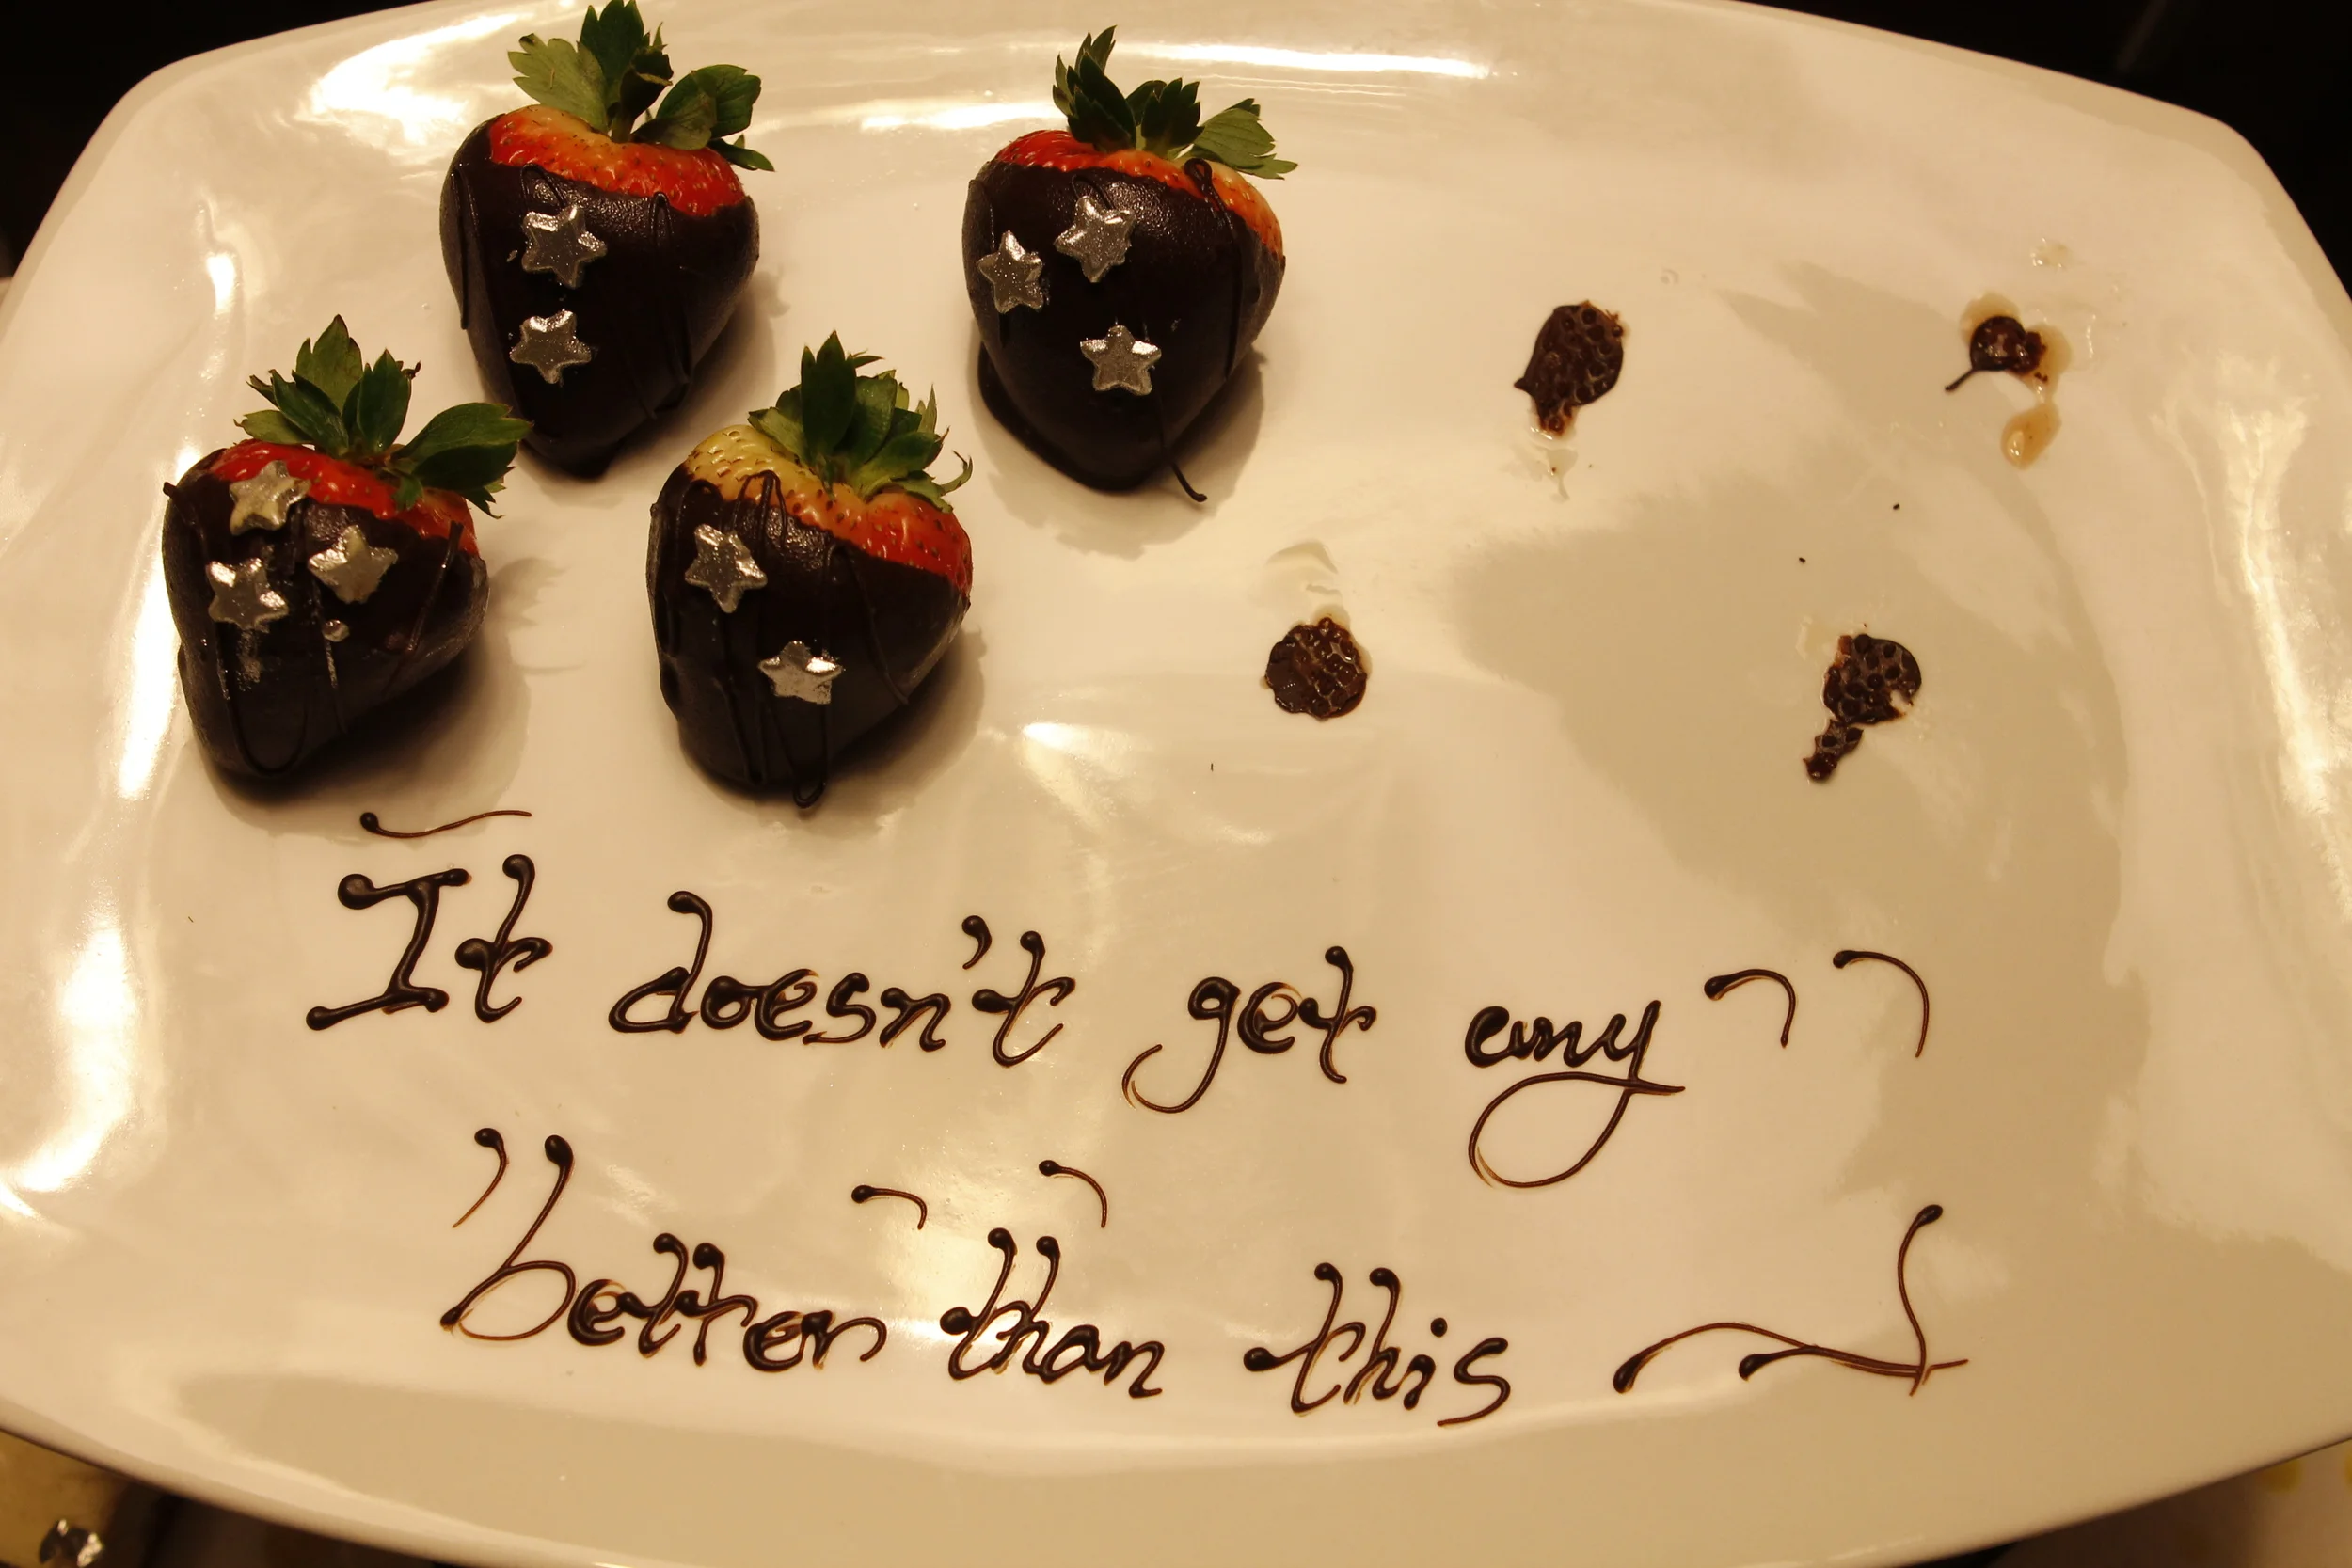 It doesn't get any
better than this